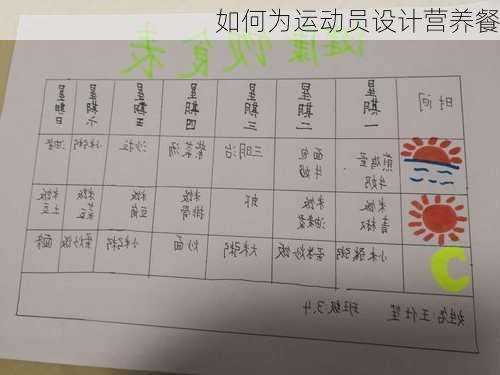 如何为运动员设计营养餐
健康饮食表
时间 星期一 星期二 星期三 星期四 星期五 星期六 星期日
煎鸡蛋 牛奶 面包 牛奶 三明治 紫菜汤 沙拉 小米粥 油条
米饭 青椒 米饭 油麦菜 虾 米饭 排骨 米饭 豆腐 米饭 米饭 土豆
小米粥 蛋炒饭 大米粥 炒面 小米粥 蛋炒饭 面条
姓名:王仕 班级:3.4